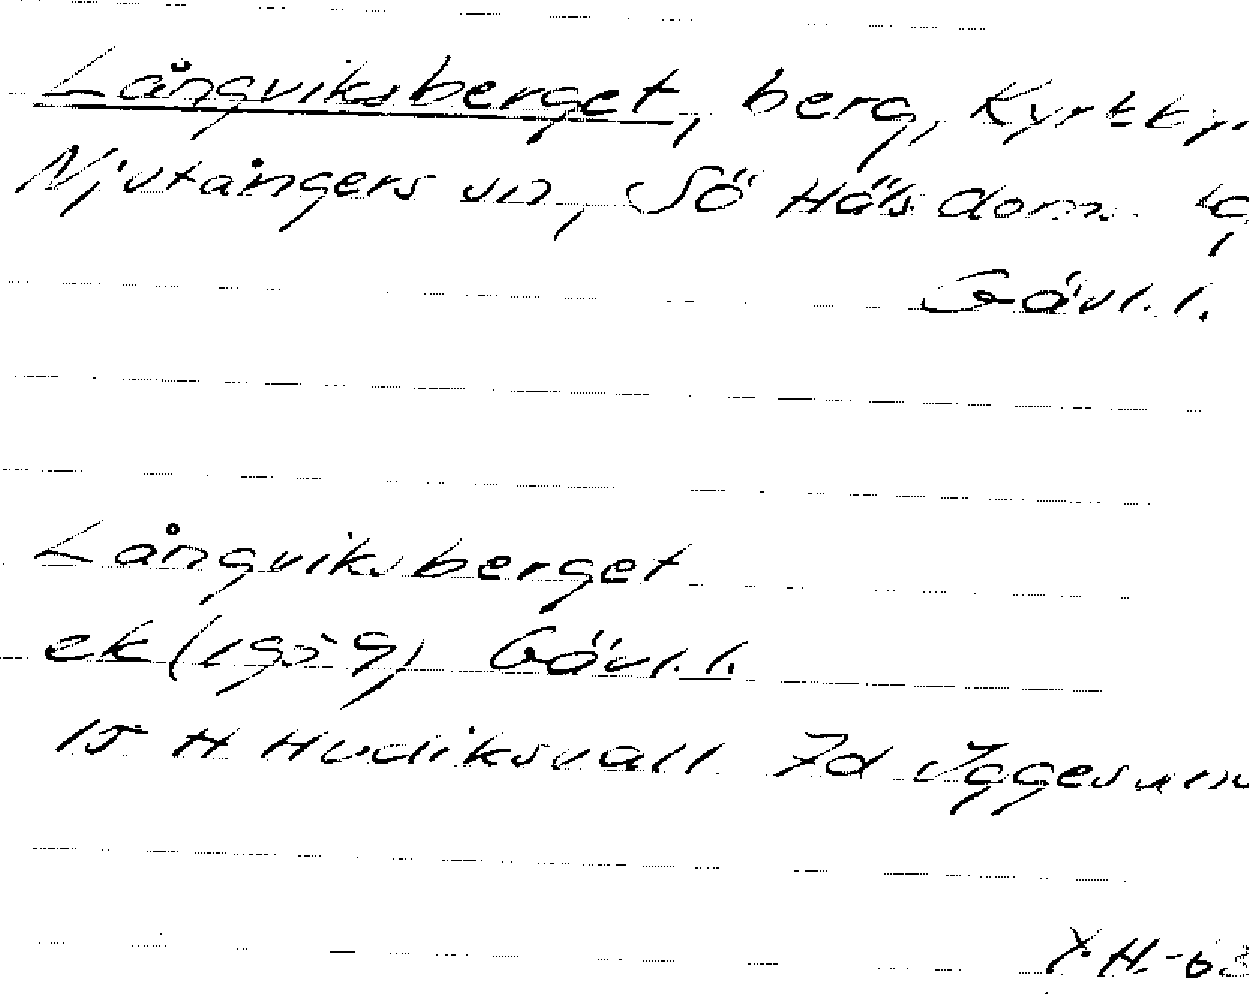 Långviksberget, berg, Kyrkby
Njutångers sn, Sö Häls. doms.
Gävl.l.
Långviksberget
ek (1959) Gävl.l.
15 H Hudiksvall 7d Iggesund
Y.H.-63